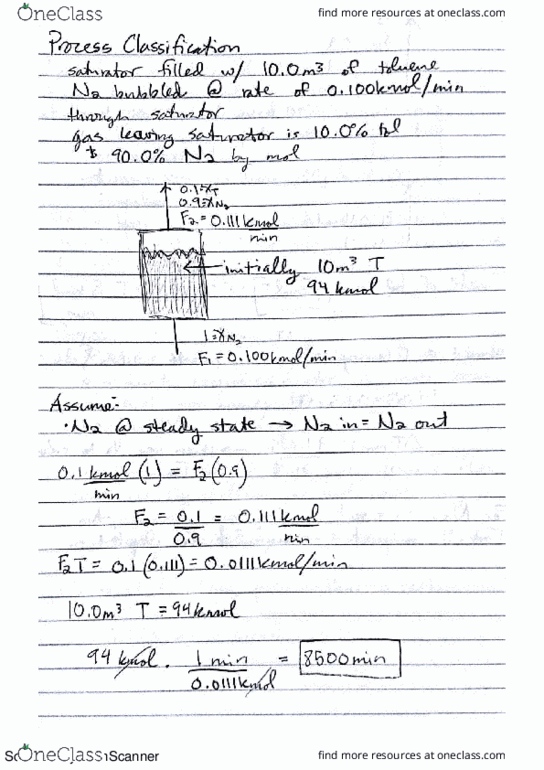 OneClass
find more resources at oneclass.com
Process Classification
saturator filled w/ 10.0m³ of toluene
N2 bubbled @ rate of 0.100kmol/min
through saturator
gas leaving saturator is 10.0% tol
& 90.0% N2 by mol
0.1=XT
0.9=XN2
F2=0.111 kmol/min
initially 10m³ T
94 kmol
1=XN2
F1=0.100kmol/min
Assume:
•N2 @ steady state → N2 in = N2 out
0.1 kmol/min (1) = F2(0.9)
F2 = 0.1/0.9 = 0.111 kmol/min
F2T = 0.1(0.111) = 0.0111kmol/min
10.0m³ T = 94kmol
94 kmol · 1 min/0.0111kmol = 8500min
OneClass
Scanner
find more resources at oneclass.com